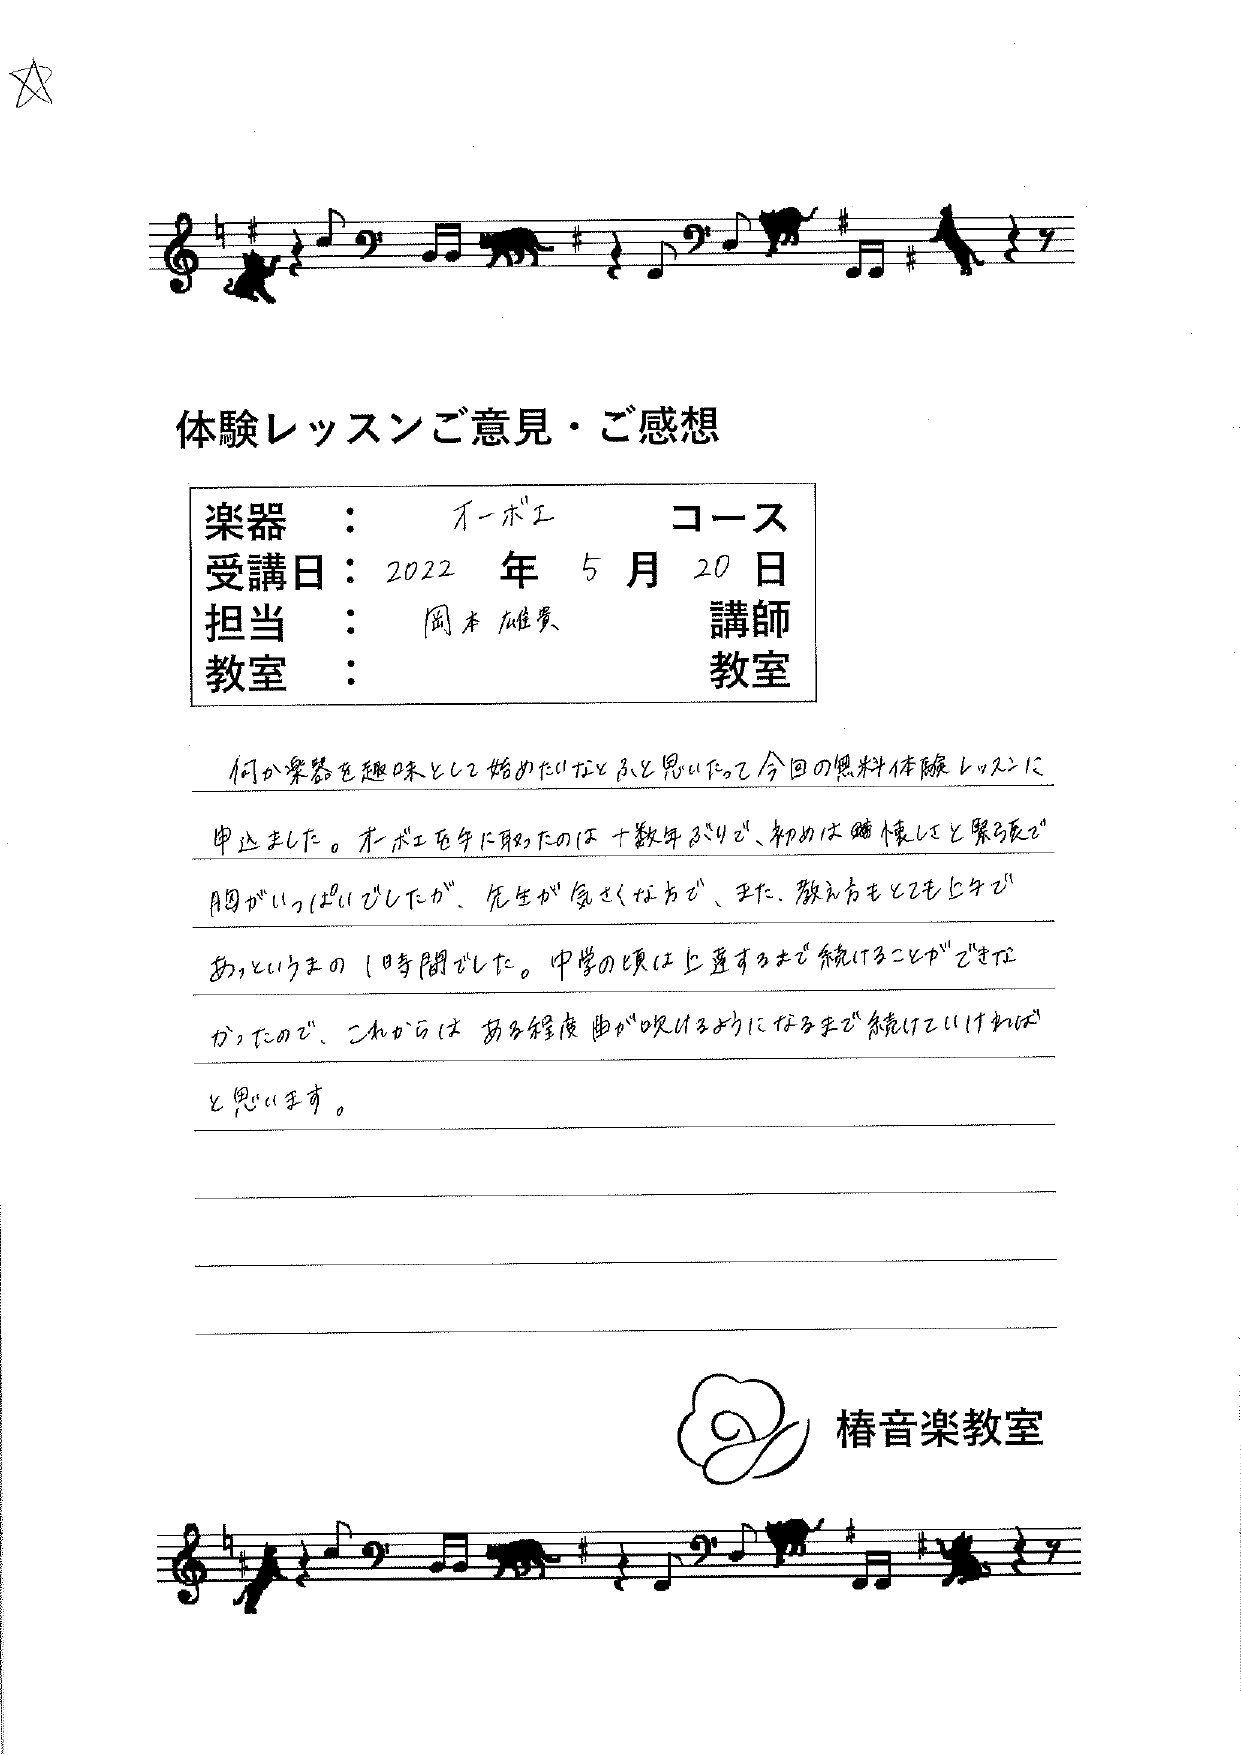 体験レッスンご意見・ご感想
楽器 : オーボエ コース
受講日 : 2022 年 5 月 20 日
担当 : 岡本 雄貴 講師
教室 : 教室
何か楽器を趣味として始めたいなとふと思いたって今回の無料体験レッスンに
申込ました。オーボエを手に取ったのは十数年ぶりで、初めは懐しさと緊張で
胸がいっぱいでしたが、先生が気さくな方で、また、教え方もとても上手で
あっというまの1時間でした。中学の頃は上達するまで続けることができな
かったので、これからはある程度曲が吹けるようになるまで続けていければ
と思います。
椿音楽教室